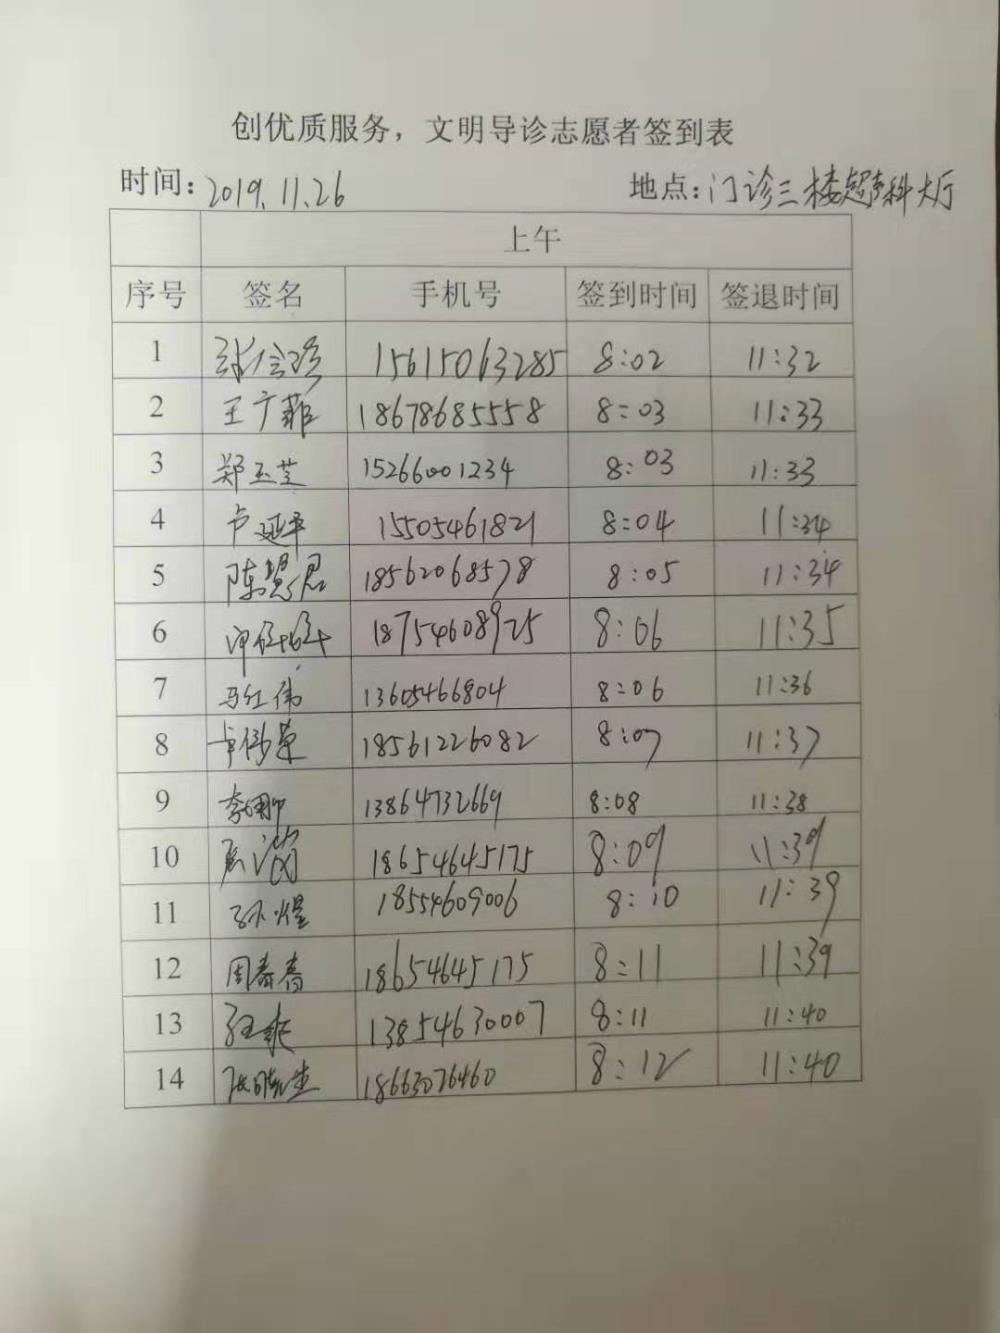 创优质服务，文明导诊志愿者签到表
时间：2019.11.26 地点：门诊三楼超声科大厅
上午
序号 签名 手机号 签到时间 签退时间
1 15615063285 8:02 11:32
2 王广菲 18678685558 8:03 11:33
3 郑玉芝 15266001234 8:03 11:33
4 卢延平 15505461821 8:04 11:34
5 陈慧君 18562068578 8:05 11:34
6 18754608925 8:06 11:35
7 马红伟 13605466804 8:06 11:36
8 18561226082 8:07 11:37
9 13864732669 8:08 11:38
10 18654645175 8:09 11:39
11 孙煜 18554609006 8:10 11:39
12 周春春 18654645175 8:11 11:39
13 13854630007 8:11 11:40
14 18663076460 8:12 11:40